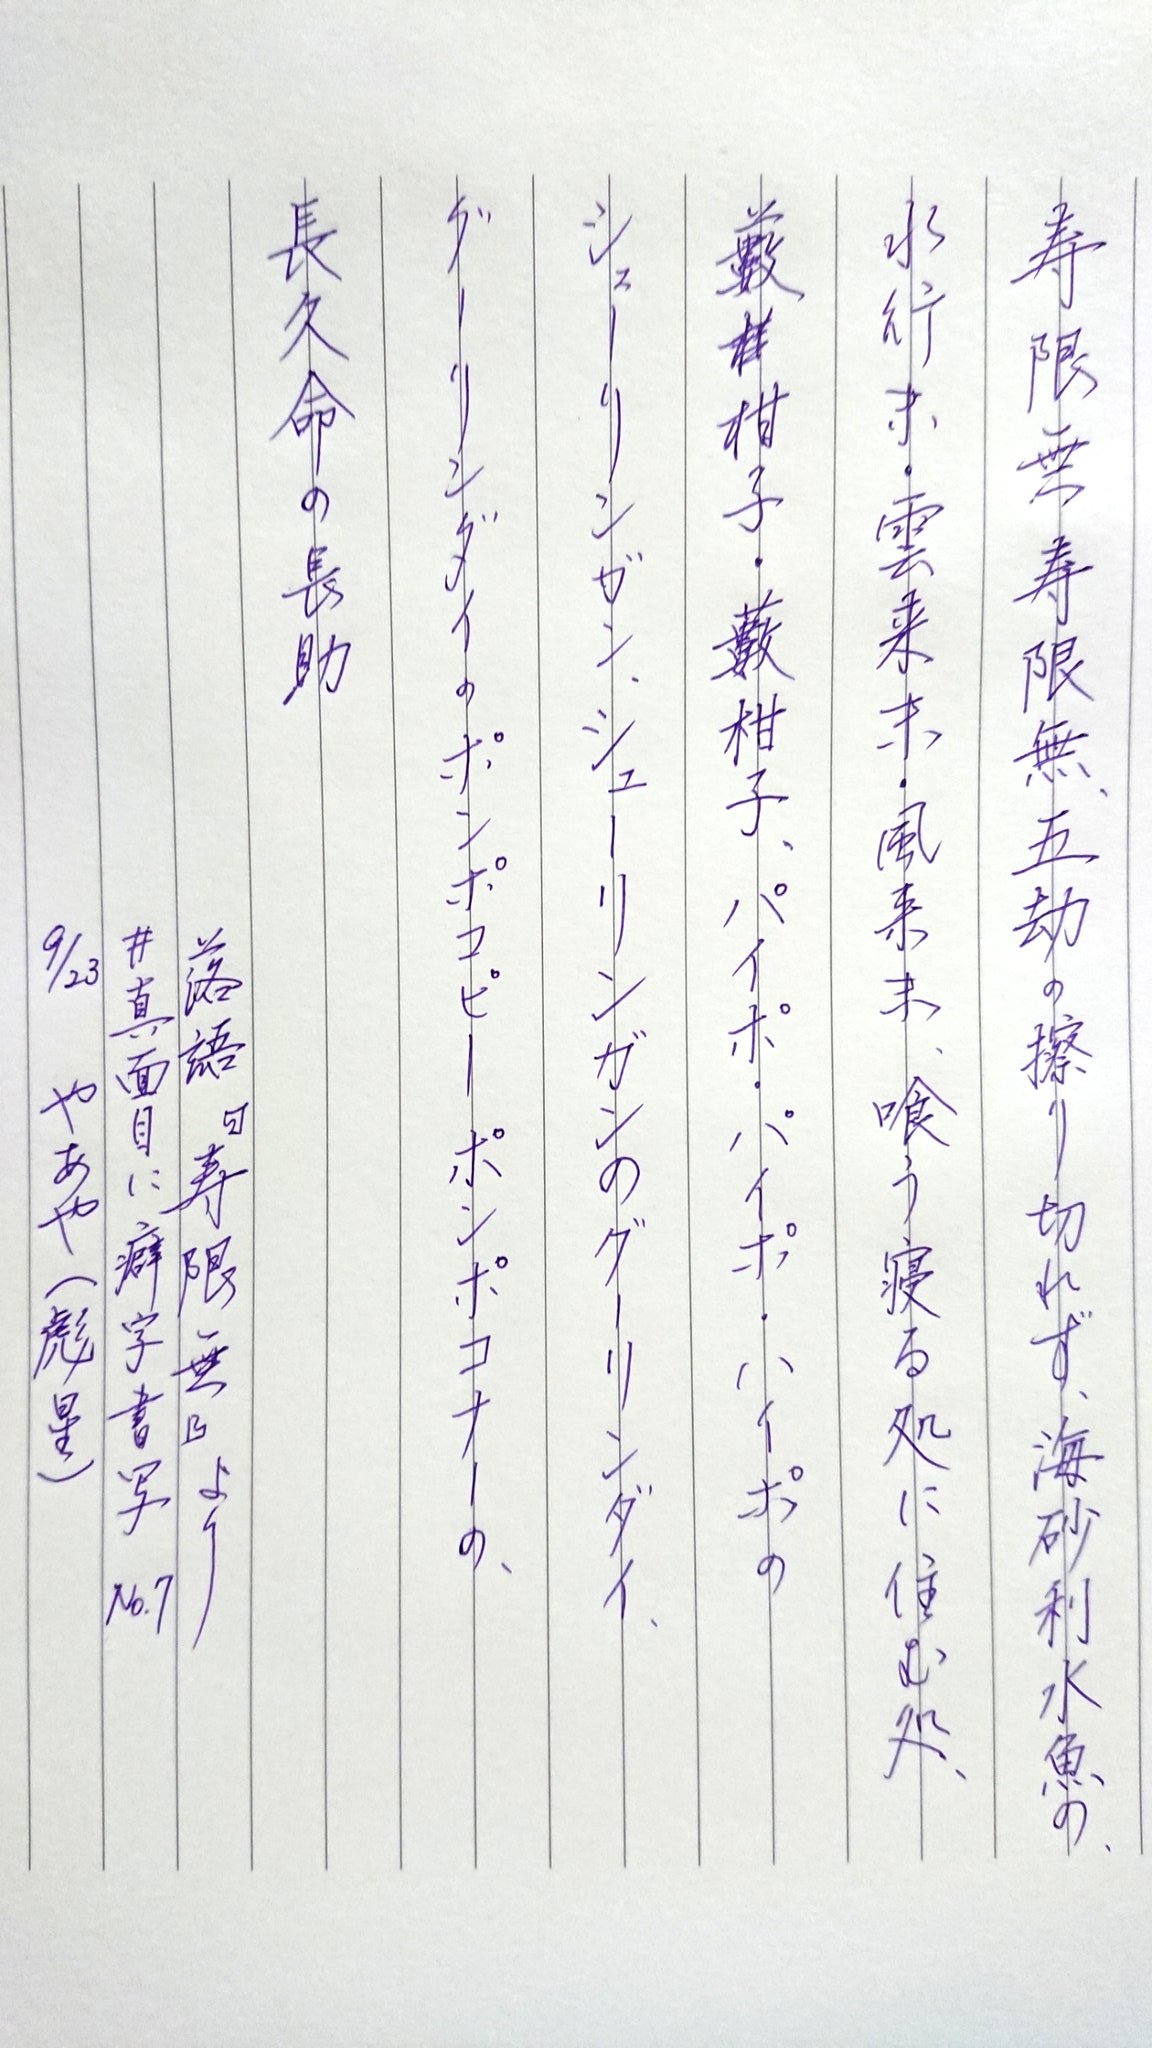 寿限無寿限無、五劫の擦り切れず、海砂利水魚の、
水行末・雲来末・風来末、喰う寝る処に住む処、
藪柑子・藪柑子、パイポ・パイポ・パイポの
シューリンガン、シューリンガンのグーリンダイ、
グーリンダイのポンポコピー ポンポコナーの、
長久命の長助
落語『寿限無』より
#真面目に癖字書写 No.7
9/23 やあや(彪星)